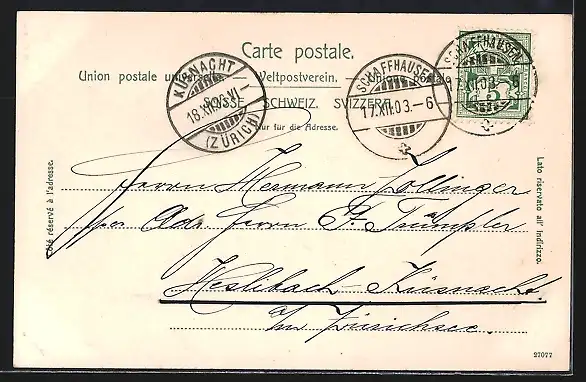 Carte postale.
Union postale universelle. — Weltpostverein. — Unione postale
SUISSE. SCHWEIZ. SVIZZERA.
Nur für die Adresse.
KÜSNACHT
18.XII.03. VI
(ZÜRICH)
SCHAFFHAUSEN
17.XII.03.–6
SCHAFFHAUSEN
17.XII.03.–
5
Côté réservé à l'adresse.
Lato riservato all' indirizzo.
Herrn Hermann Zollinger
per Adr. Herrn F. Trümpler
Heslibach-Küsnacht
am Zürichsee.
27077